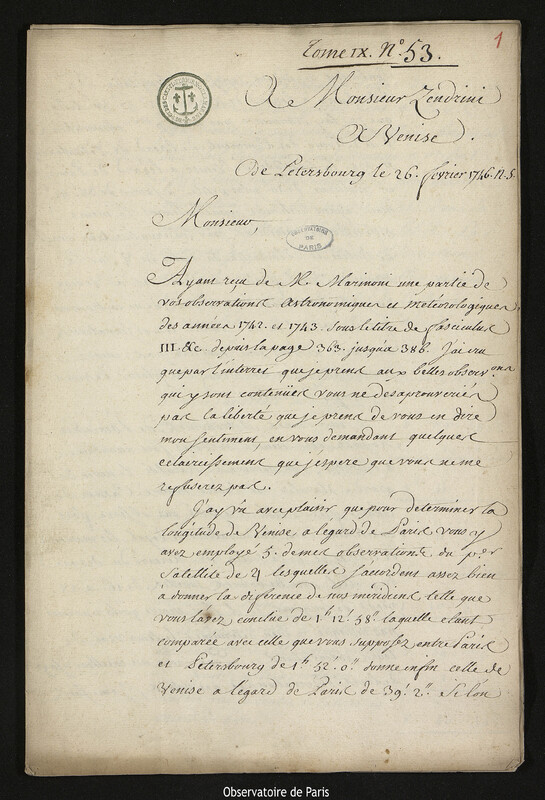 1
Tome IX. N.º 53.
A Monsieur Zendrini
A Venise.
De Petersbourg le 26. fevrier 1746. n. s.
Monsieur,
OBSERVATOIRE
DE
PARIS
Ayant reçu de M. Marinoni une partie de
vos observations astronomiques et météorologiques
des années 1742. et 1743. sous le titre de fasciculus
III. &c. depuis la page 363. jusqu'a 386. J'ai cru
que par l'interres que je prens aux belles observons
qui y sont contenües vous ne desaprouveriés
pas la liberté que je prens de vous en dire
mon sentiment en vous demandant quelques
eclaircissement que j'espere que vous ne me
refuserez pas.
J'ay vû avec plaisir que pour determiner la
longitude de Venise a legard de Paris vous y
avez employé 5. de mes observations du per
Satellite de ♃ lesquelles s'acordent assez bien
a donner la difference de nos méridiens telle que
vous l'avez conclue de 1h 12' 58" laquelle etant
comparée avec celle que vous supposez entre Paris
et Petersbourg de 1h 52' 0" donne enfin celle de
Venise a légard de Paris de 39' 2" Selon
Observatoire de Paris